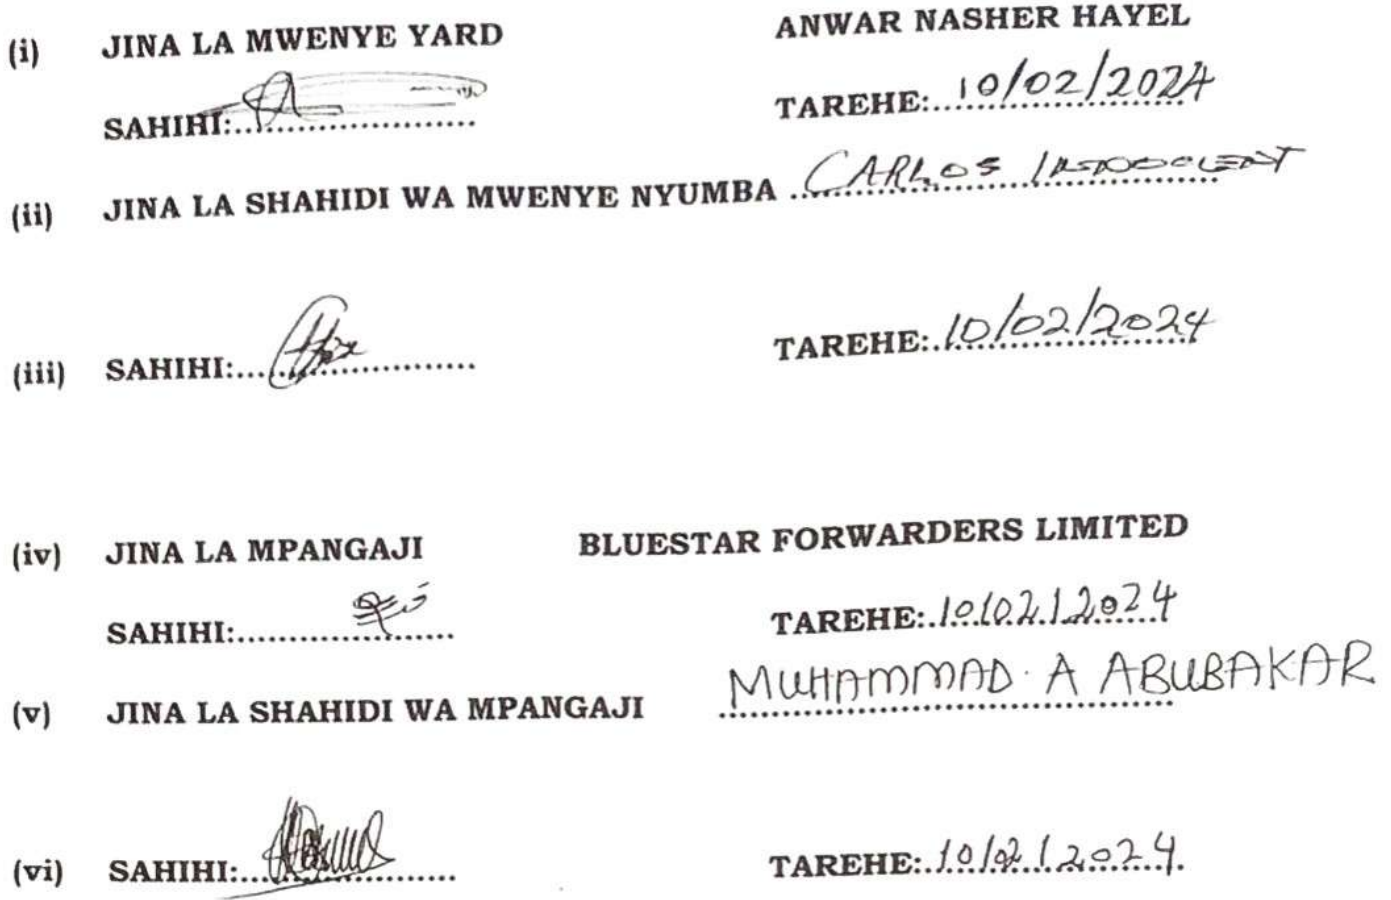 (i) JINA LA MWENYE YARD ANWAR NASHER HAYEL
SAHIHI:........................ TAREHE:..10/02/2024
(ii) JINA LA SHAHIDI WA MWENYE NYUMBA ..CARLOS
(iii) SAHIHI:........................ TAREHE:..10/02/2024
(iv) JINA LA MPANGAJI BLUESTAR FORWARDERS LIMITED
SAHIHI:...................... TAREHE:..10/02/2024
(v) JINA LA SHAHIDI WA MPANGAJI MUHAMMAD. A ABUBAKAR
(vi) SAHIHI:...................... TAREHE:..10/02/2024.